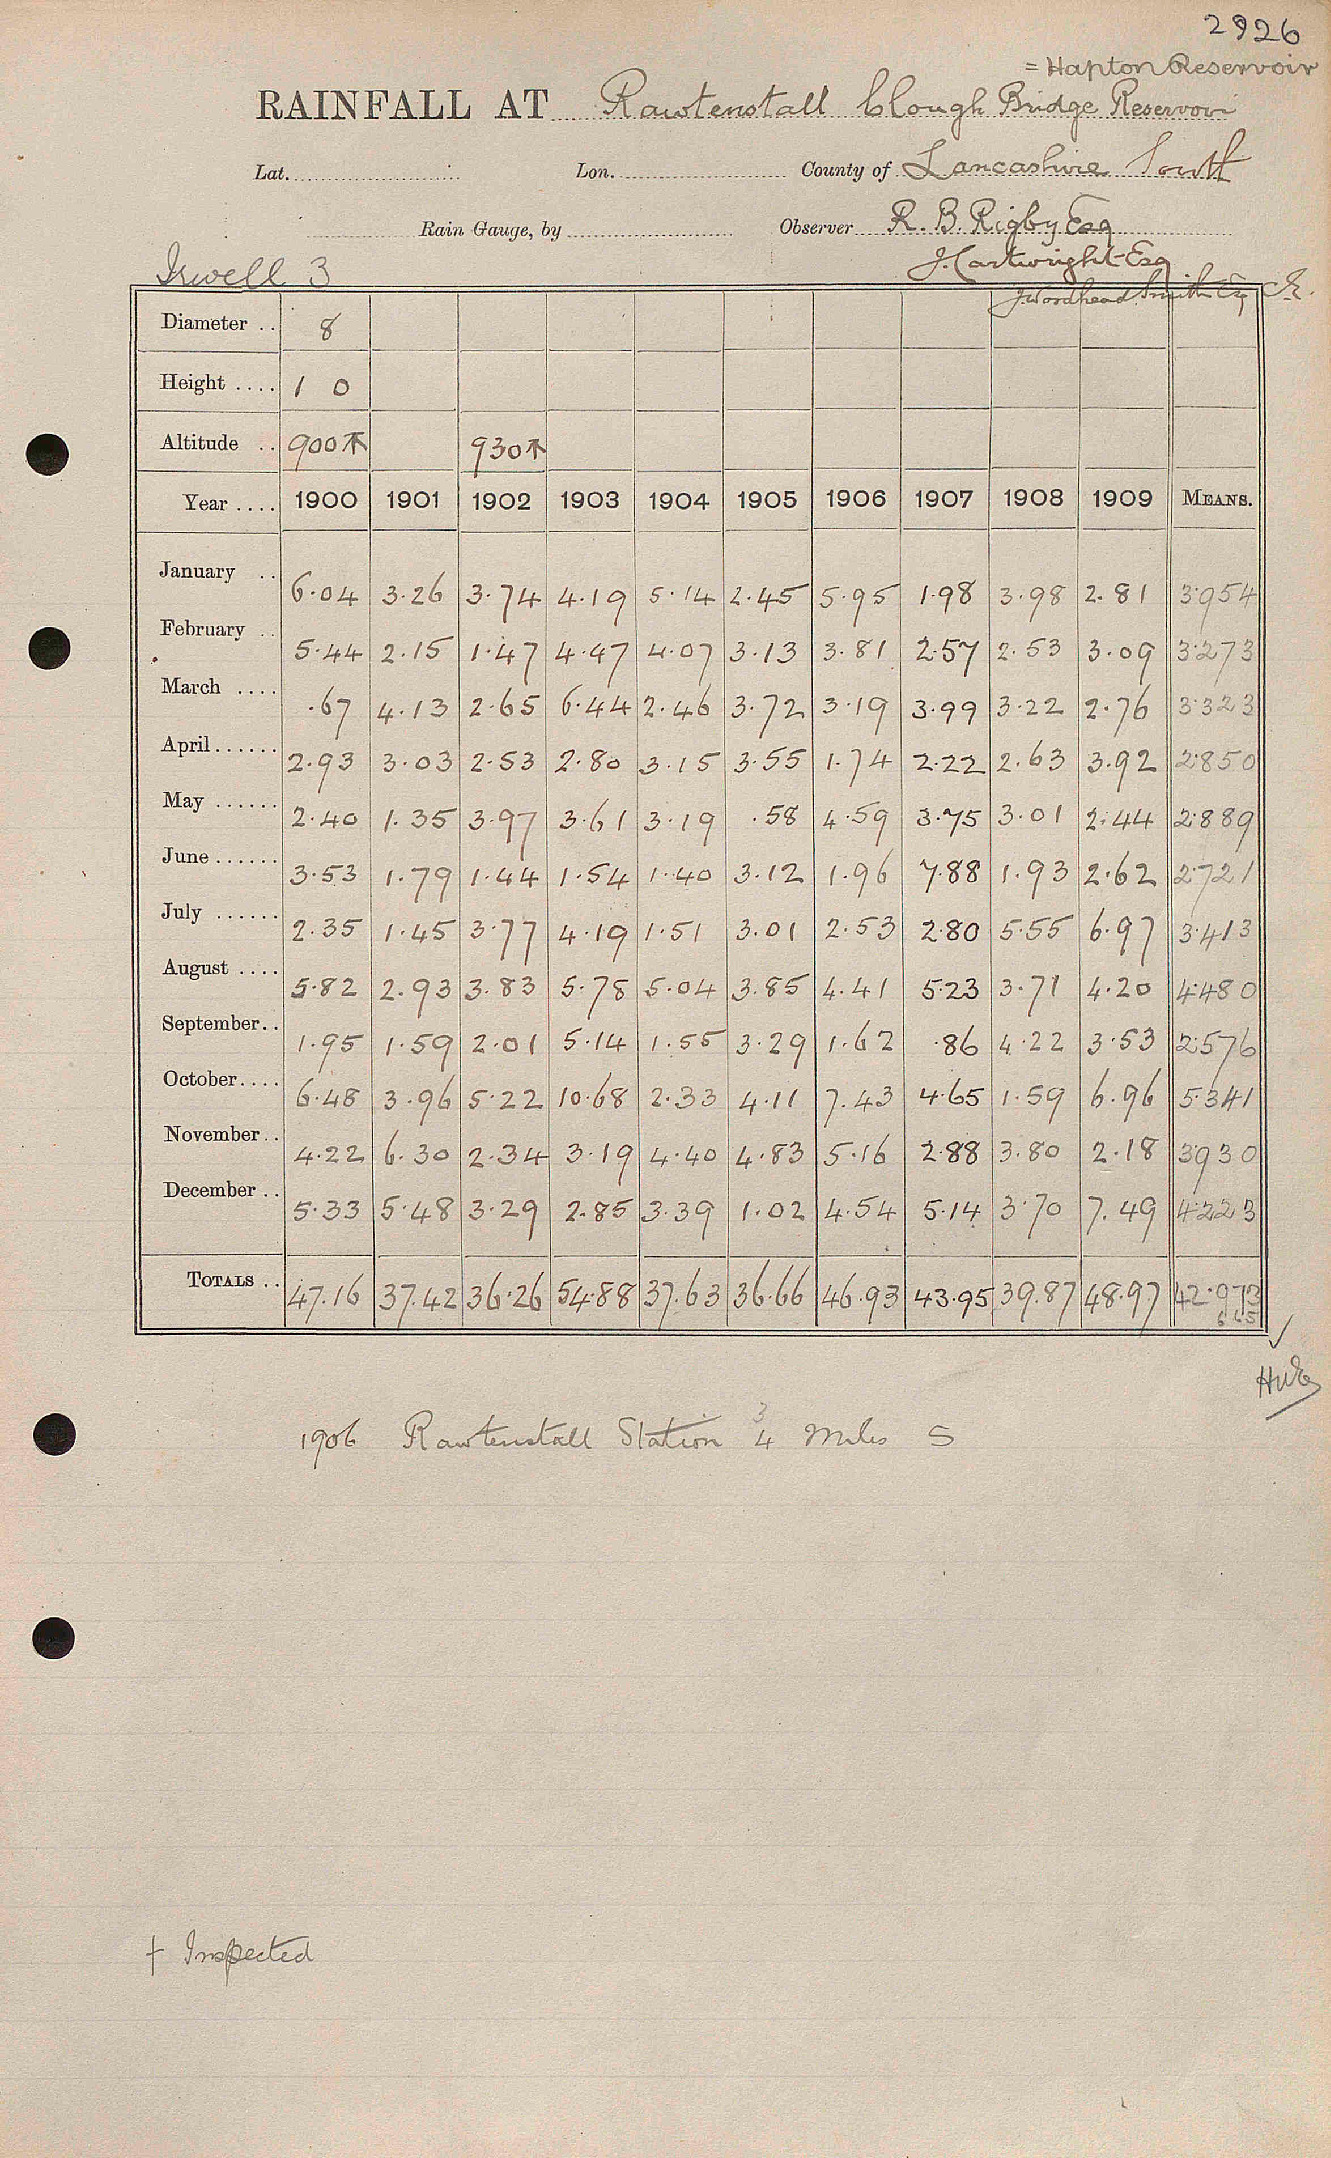 2926
= Hapton Reservoir
RAINFALL AT Rawtenstall Clough Bridge Reservoir
Lat. Lon. County of Lancashire South
Rain Gauge, by Observer R. B. Rigby Esq
J. Cartwright Esq
Irwell 3 J Woodhead Smith Esq
Diameter .. 8
Height .... 1 0
Altitude .. 900 930
Year .... 1900 1901 1902 1903 1904 1905 1906 1907 1908 1909 MEANS.
January .. 6.04 3.26 3.74 4.19 5.14 2.45 5.95 1.98 3.98 2.81 3.954
February .. 5.44 2.15 1.47 4.47 4.07 3.13 3.81 2.57 2.53 3.09 3.273
March .... .67 4.13 2.65 6.44 2.46 3.72 3.19 3.99 3.22 2.76 3.323
April ...... 2.93 3.03 2.53 2.80 3.15 3.55 1.74 2.22 2.63 3.92 2.850
May ...... 2.40 1.35 3.97 3.61 3.19 .58 4.59 3.75 3.01 2.44 2.889
June ...... 3.53 1.79 1.44 1.54 1.40 3.12 1.96 7.88 1.93 2.62 2.721
July ...... 2.35 1.45 3.77 4.19 1.51 3.01 2.53 2.80 5.55 6.97 3.413
August .... 5.82 2.93 3.83 5.78 5.04 3.85 4.41 5.23 3.71 4.20 4.480
September .. 1.95 1.59 2.01 5.14 1.55 3.29 1.62 .86 4.22 3.53 2.576
October .... 6.48 3.96 5.22 10.68 2.33 4.11 7.43 4.65 1.59 6.96 5.341
November .. 4.22 6.30 2.34 3.19 4.40 4.83 5.16 2.88 3.80 2.18 3930
December .. 5.33 5.48 3.29 2.85 3.39 1.02 4.54 5.14 3.70 7.49 4.223
TOTALS .. 47.16 37.42 36.26 54.88 37.63 36.66 46.93 43.95 39.87 48.97 42.973
6 65
1906 Rawtenstall Station 3/4 Miles S
† Inspected